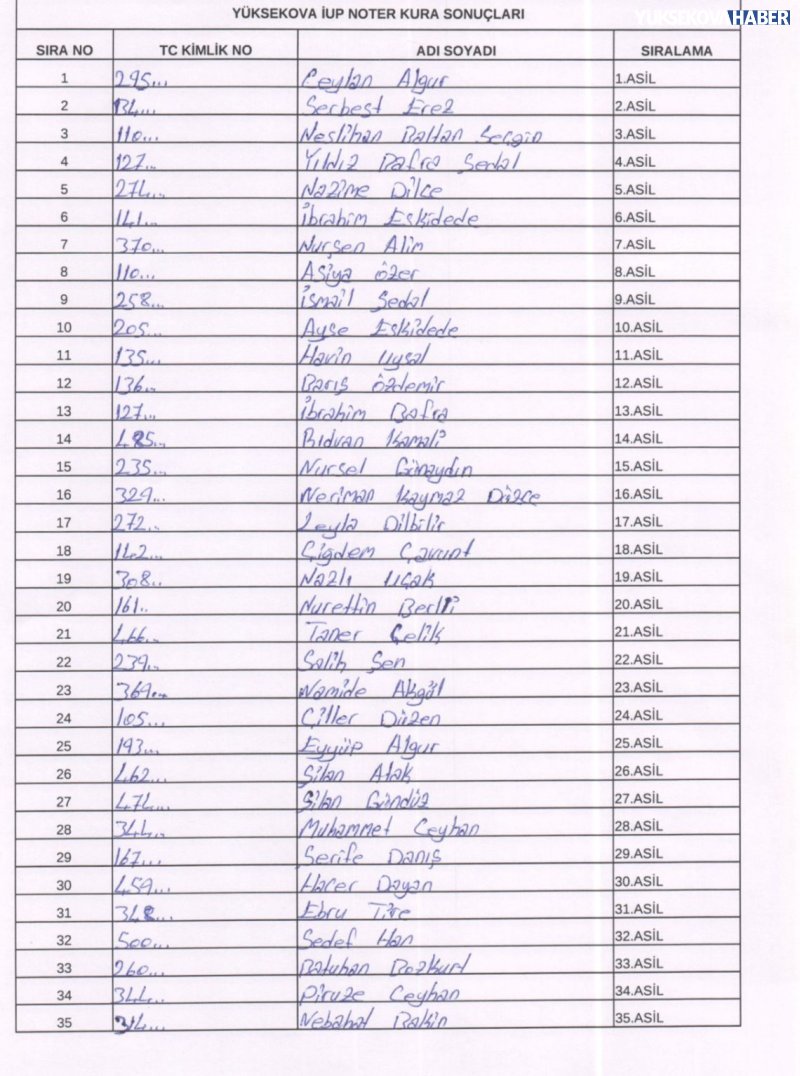 YÜKSEKOVA İUP NOTER KURA SONUÇLARI
YÜKSEKOVA HABER
SIRA NO TC KİMLİK NO ADI SOYADI SIRALAMA
1 295... Ceylan Algur 1.ASİL
2 134... Serbest Erez 2.ASİL
3 110... Neslihan Baltan Sergin 3.ASİL
4 127... Yıldız Bafra Sedal 4.ASİL
5 274... Nazime Dilce 5.ASİL
6 141... İbrahim Eskidede 6.ASİL
7 370... Nurşen Alim 7.ASİL
8 110... Asiya özer 8.ASİL
9 258... İsmail Şedal 9.ASİL
10 205... Ayşe Eskidede 10.ASİL
11 135... Havin Uysal 11.ASİL
12 136.. Barış özdemir 12.ASİL
13 127... İbrahim Bafra 13.ASİL
14 485... Rıdvan Kamalı 14.ASİL
15 235... Nursel Günaydın 15.ASİL
16 329... Neriman Kaymaz Düzce 16.ASİL
17 272... Leyla Dilbilir 17.ASİL
18 142... Çiğdem 18.ASİL
19 308.. Nazlı Uçak 19.ASİL
20 161.. Nurettin 20.ASİL
21 466... Taner Çelik 21.ASİL
22 239.. Salih Şen 22.ASİL
23 369... Namide Akgül 23.ASİL
24 105... Çiller Düzen 24.ASİL
25 193... Eyyüp Algur 25.ASİL
26 462... Şilan Atak 26.ASİL
27 474... Şilan Gündüz 27.ASİL
28 344... Muhammet Ceyhan 28.ASİL
29 167... Şerife Danış 29.ASİL
30 459... Hacer Dayan 30.ASİL
31 348... Ebru Tire 31.ASİL
32 500... Sedef Han 32.ASİL
33 260... Batuhan Bozkurt 33.ASİL
34 344... Piruze Ceyhan 34.ASİL
35 314... Nebahat Bakin 35.ASİL